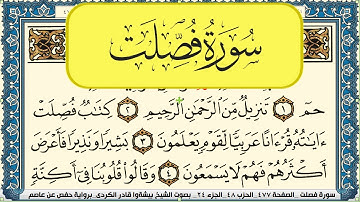 سُورَةُ فُصِّلَتْ
حمٓ ١ تَنزِيلٌ مِّنَ ٱلرَّحْمَٰنِ ٱلرَّحِيمِ ٢ كِتَٰبٌ فُصِّلَتْ
ءَايَٰتُهُۥ قُرْءَانًا عَرَبِيًّا لِّقَوْمٍ يَعْلَمُونَ ٣ بَشِيرًا وَنَذِيرًا فَأَعْرَضَ
أَكْثَرُهُمْ فَهُمْ لَا يَسْمَعُونَ ٤ وَقَالُوا۟ قُلُوبُنَا فِىٓ أَكِنَّةٍ
سورة فصلت - الصفحة ٤٧٧ - الحزب ٤٨ - الجزء ٢٤ - بصوت الشيخ بيشةوا قادر الكردي - برواية حفص عن عاصم